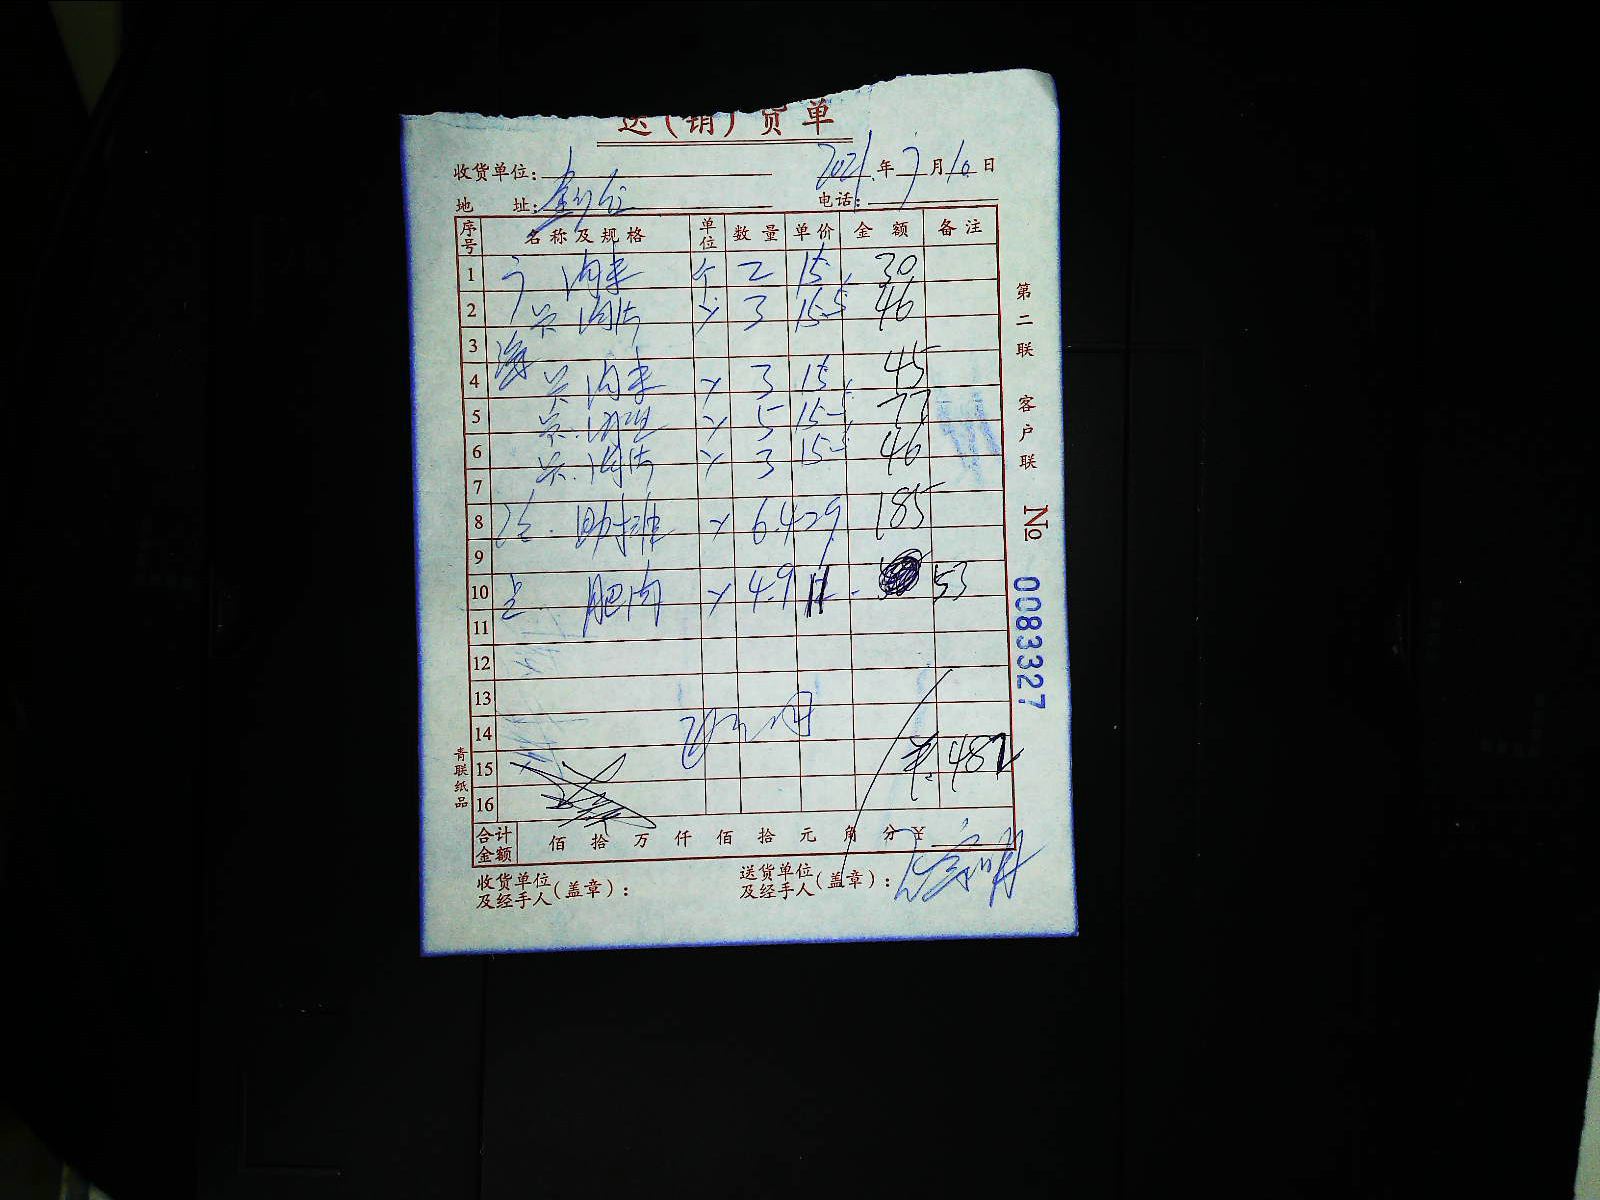 送(销)货单
收货单位:
2021年7月10日
地 址:
电话:
序号 名称及规格 单位 数量 单价 金额 备注
1 肉末 个 2 15 30
2 3 15.5 46
3
4 肉末 3 15 45
5 5 15.5 77
6 3 15.5 46
7
8 助排 6.4 29 185
9
10 肥肉 4.9 11 53
11
12
13
14
15 ¥:482
16
合计金额 佰 拾 万 仟 佰 拾 元 角 分 ¥
收货单位及经手人(盖章):
送货单位及经手人(盖章):
第二联 客户联
No 0083327
青联纸品